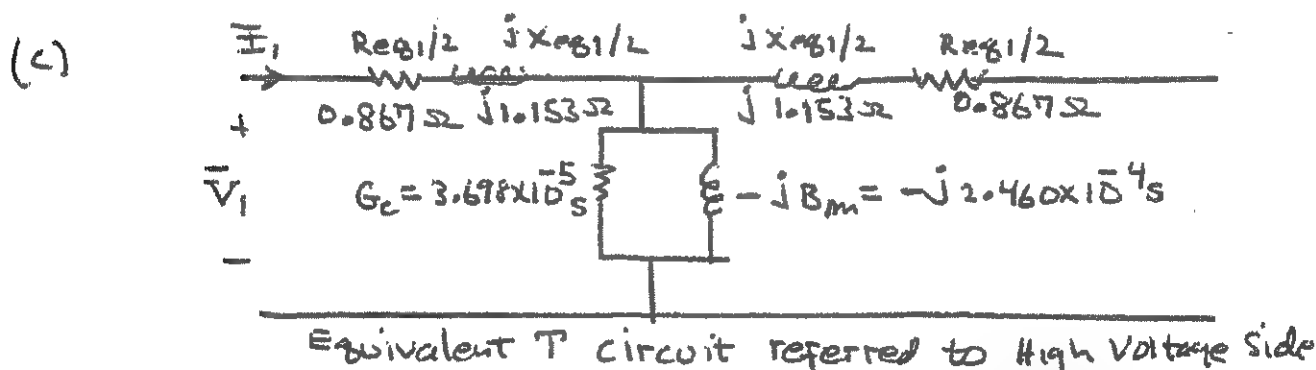 (c)
I̅₁ Req1/2 jXeq1/2 jXeq1/2 Req1/2
0.867Ω j1.153Ω j1.153Ω 0.867Ω
+
V̅₁ Gc = 3.698×10⁻⁵ S -jBm = -j2.460×10⁻⁴ S
−
Equivalent T circuit referred to High Voltage Side